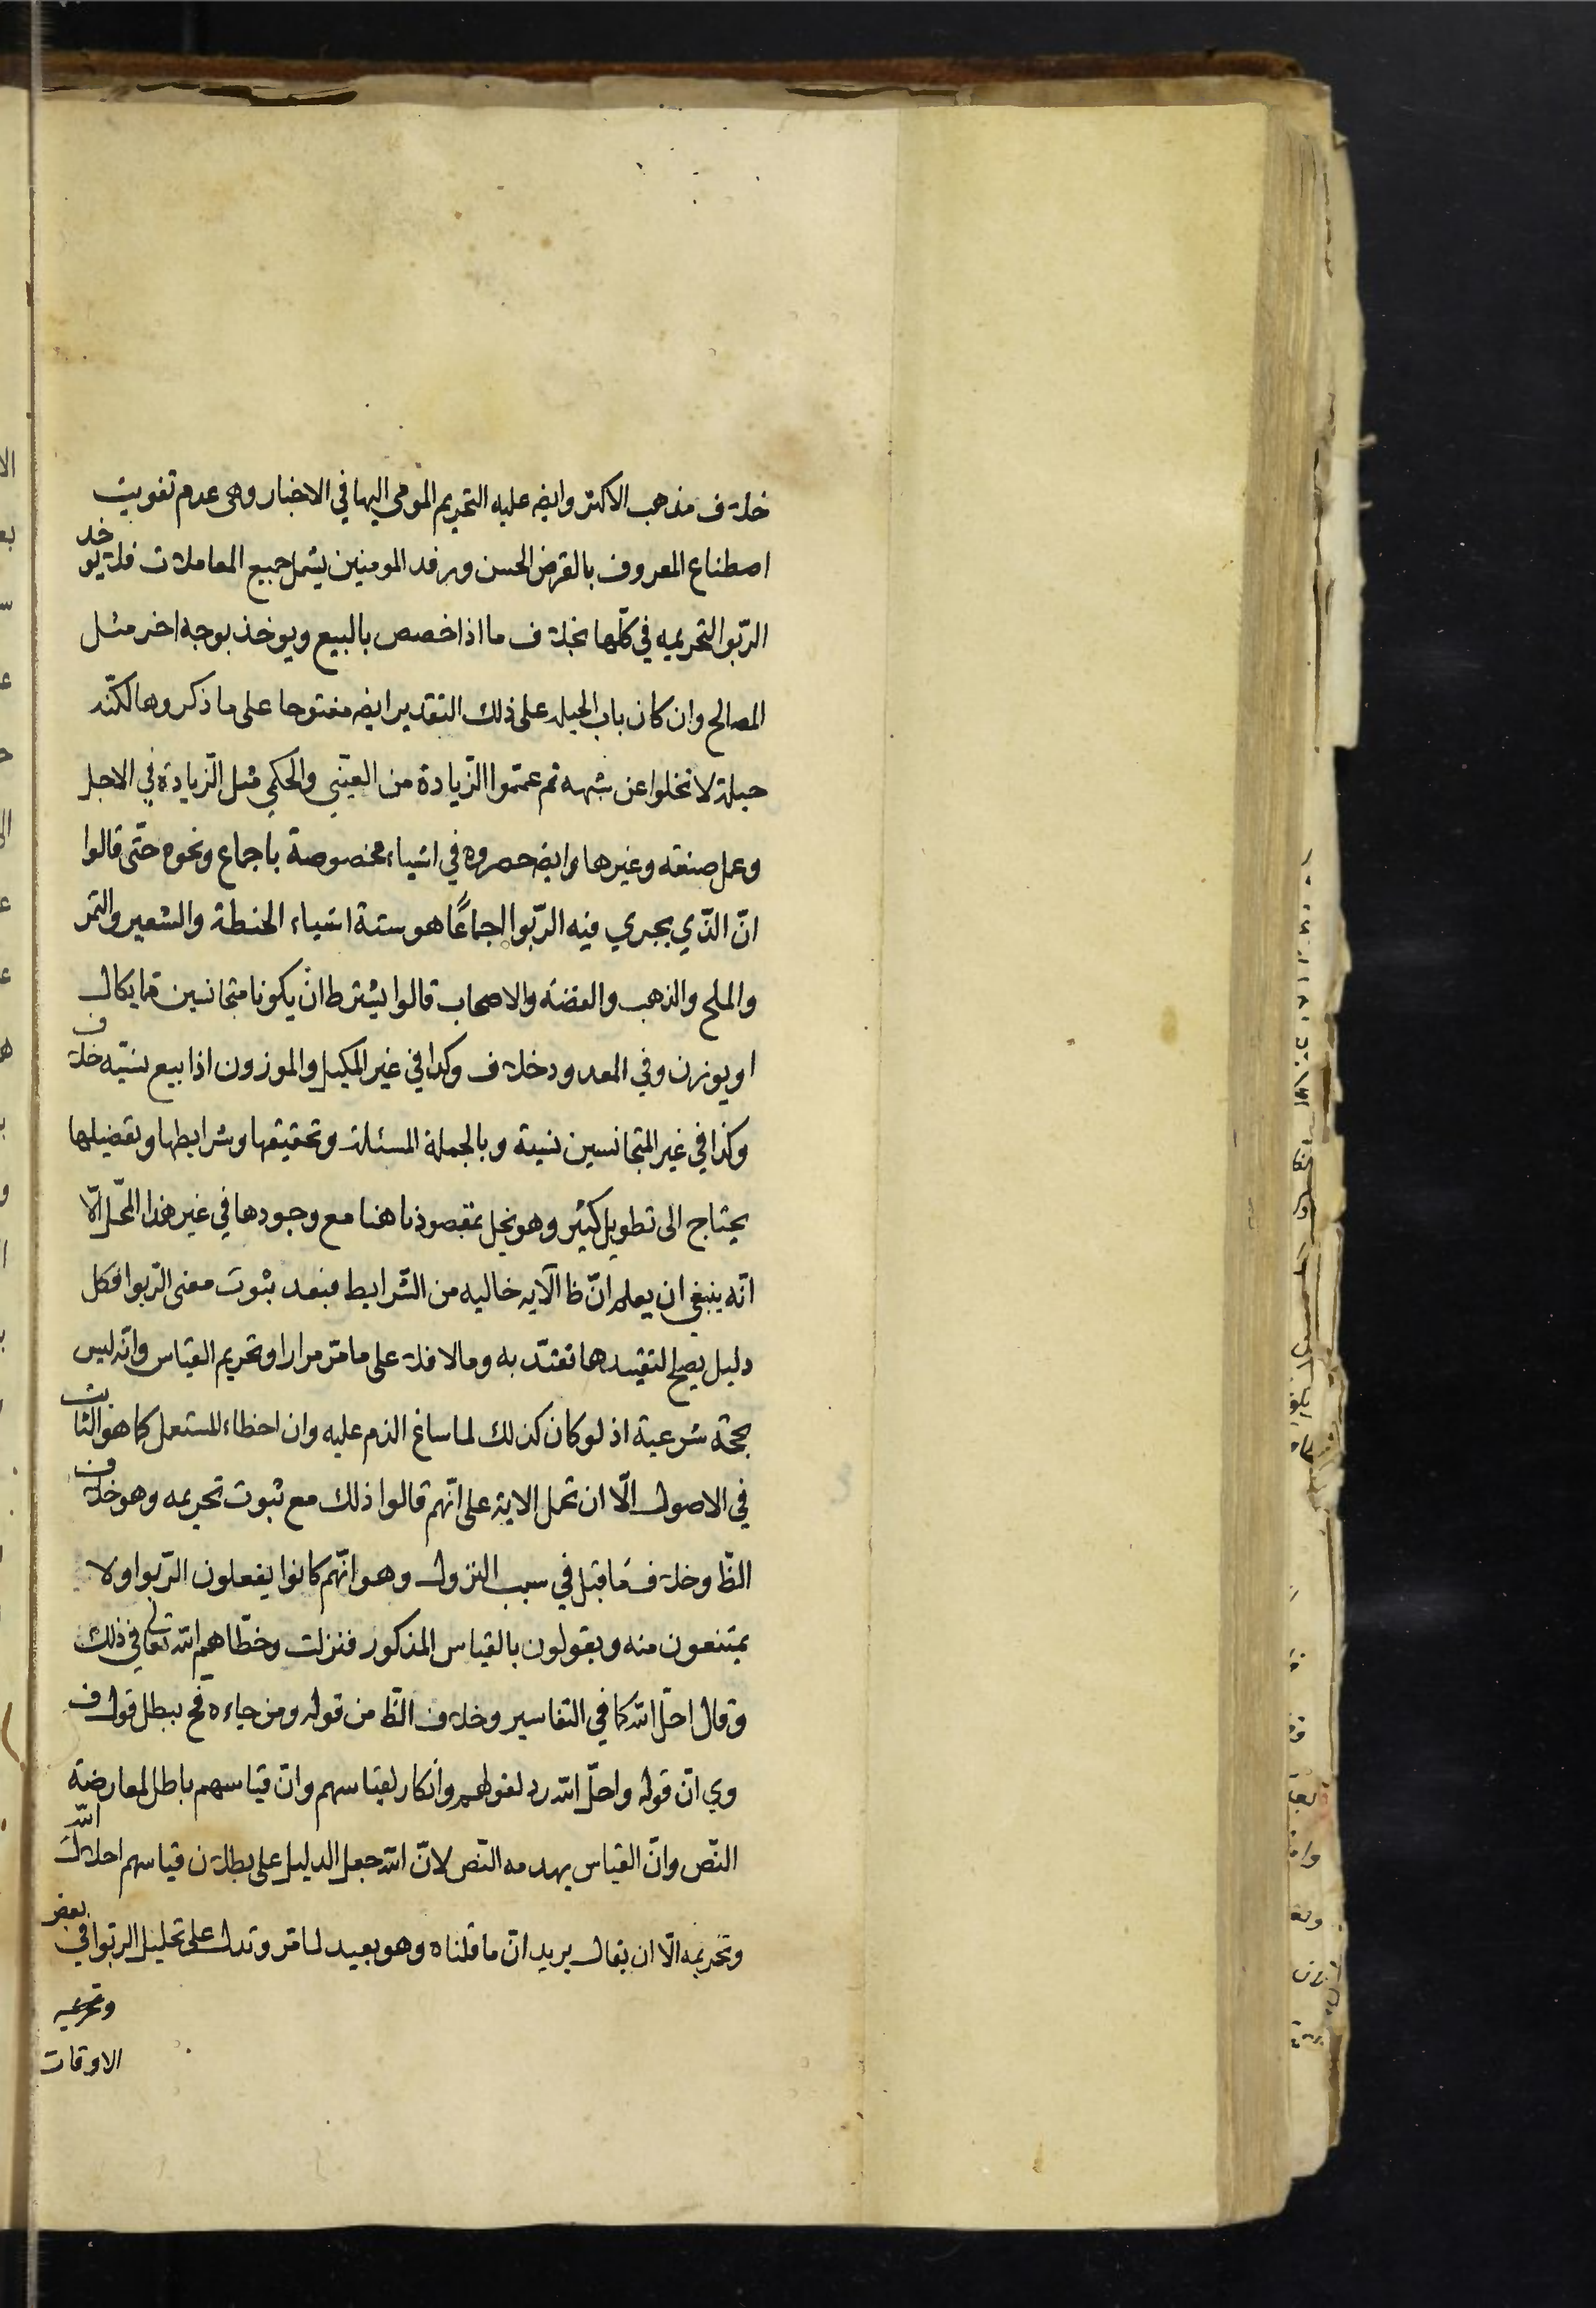 خلاف مذهب الاكثر وايضه عليه التحريم المومى اليها في الاخبار وهى عدم تفويت
اصطناع المعروف بالقرض الحسن ورفد المومنين يشمل جميع المعاملات فلا يوخد
الرّبوا التحريميه في كلّها بخلاف ما اذا خصص بالبيع ويوخذ بوجه اخر مثل
المصالح وان كان باب الحيله على ذلك التقدير ايضه مفتوحا على ما ذكروها لكنّه
حيلة لا تخلوا عن شبهه ثم عمّموا الزّيادة من العيني والحكمي مثل الزّيادة في الاجل
وعمل صنعه وغيرها وايضه حصروه في اشياء مخصوصة باجماع ونحوه حتّى قالوا
انّ الذّي يجري فيه الرّبوا اجماعًا هو ستة اشياء الحنطة والشعير والتمر
والملح والذهب والفضه والاصحاب قالوا يشترط ان يكونا متجانسين مما يكال
او يوزن وفي المعدود خلاف وكذا في غير المكيل والموزون اذا بيع نسيّه خلاف
وكذا في غير المتجانسين نسية وبالجملة المسئلة وتحقيقها وشرايطها وتفصيلها
يحتاج الى تطويل كثير وهو يخل بمقصودنا هنا مع وجودها في غير هذا المحّل الّا
انّه ينبغي ان يعلم انّ ظا الآيه خاليه من الشّرايط فبعد ثبوت معنى الرّبوا فكل
دليل يصلح لتقييدها تقيّد به وما لا فلا على ما مرّ مرارا وتحريم القياس وانّه ليس
بحجّة شرعية اذ لو كان كذلك لما ساغ الذم عليه وان اخطاء المستعمل كما هو الثابت
في الاصول الّا ان تحمل الاية على انّهم قالوا ذلك مع ثبوت تحريمه وهو خلاف
الظّ وخلاف ما قيل في سبب النزول وهو انّهم كانوا يفعلون الرّبوا ولا
يمتنعون منه ويقولون بالقياس المذكور فنزلت وخطّاهم الله تعالى في ذلك
وقال احلّ الله كما في التفاسير وخلاف الظّ من قوله ومن جاءه فح يبطل قول ف
وي انّ قوله واحلّ الله رد لقولهم وانكار لقياسهم وانّ قياسهم باطل لمعارضة
النّص وانّ القياس يهدمه النّص لانّ الله جعل الدليل على بطلان قياسهم احلال الله
وتحريمه الّا ان يقال يريد انّ ما قلناه وهو بعيد لما مر وتدل على تحليل الربوا في بعض
وتحريمه
الاوقات